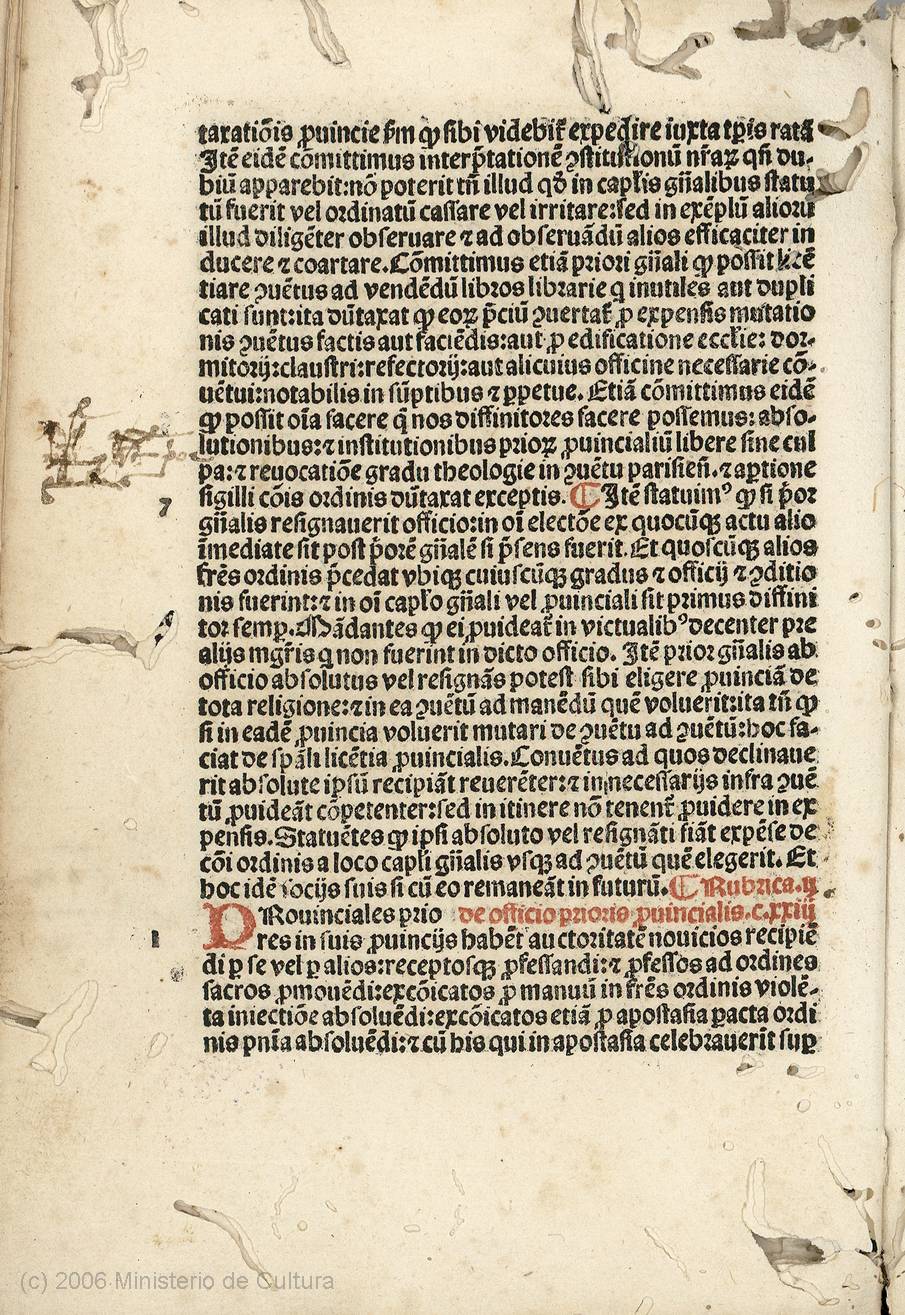 taxatiõis ꝓuincie ẜm ꝙ sibi videbit᷑ expedire iuxta tꝑis ratã
Jtẽ eidẽ cõmittimus interp̃tationẽ ꝯstitutionũ nr̃aꝝ qñ du-
biũ apparebit:nõ poterit tñ illud qđ in capl̃is gñalibus statu
tũ fuerit vel ordinatũ cassare vel irritare:sed in exẽplũ alioru
illud diligẽter obseruare ⁊ ad obseruãdũ alios efficaciter in
ducere ⁊ coartare.Cõmittimus etiã priori gñali ꝙ possit licẽ
tiare ꝯuẽtus ad vendẽdũ libros librarie q inutiles aut dupli
cati sunt:ita dũtaxat ꝙ eoꝝ p̃ciũ ꝯuertat᷑ ꝓ expensis mutatio
nis ꝯuẽtus factis aut faciẽdis:aut ꝓ edificatione eccl̃ie: dor-
mitorij:claustri:refectorij:aut alicuius officine necessarie cõ-
uẽtui:notabilis in sũptibus ⁊ ꝑpetue. Etiã cõmittimus eidẽ
ꝙ possit oĩa facere q̃ nos diffinitores facere possemus: abso-
lutionibus:⁊ institutionibus prioꝝ ꝓuincialiũ libere sine cul
pa:⁊ reuocatiõe gradu theologie in ꝯuẽtu parisieñ.⁊ aꝑtione
sigilli cõis ordinis dũtaxat exceptis. ⸿ Jtẽ statuimꝰ ꝙ si p̃or
gñalis resignauerit officio:in oĩ electõe ex quocũqꝫ actu alio
ĩmediate sit post p̃orẽ gñalẽ si p̃sens fuerit.Et quoscũqꝫ alios
fr̃es ordinis p̃cedat vbiqꝫ cuiuscũqꝫ gradus ⁊ officij ⁊ ꝯditio
nis fuerint:⁊ in oĩ capl̃o gñali vel ꝓuinciali sit primus diffini
tor semꝑ.Mãdantes ꝙ ei ꝓuideat᷑ in victualibꝰ decenter pre
alijs mgr̃is q non fuerint in dicto officio. Jtẽ prior gñalis ab
officio absolutus vel resignãs potest sibi eligere ꝓuinciã de
tota religione:⁊ in ea ꝯuẽtũ ad manẽdũ quẽ voluerit:ita tñ ꝙ
si in eadẽ ꝓuincia voluerit mutari de ꝯuẽtu ad ꝯuẽtũ:hoc fa-
ciat de spãli licẽtia ꝓuincialis.Conuẽtus ad quos declinaue
rit absolute ipsũ recipiãt reuerẽter:⁊ in necessarijs infra ꝯuẽ
tũ ꝓuideãt cõpetenter:sed in itinere nõ tenent᷑ ꝓuidere in ex
pensis.Statuẽtes ꝙ ipsi absoluto vel resignãti fiãt expẽse de
cõi ordinis a loco capl̃i gñalis vsqꝫ ad ꝯuẽtũ quẽ elegerit. Et
hoc idẽ socijs suis si cũ eo remaneãt in futurũ.⸿ Rubrica.ij
PRouinciales prio de officio prioris ꝓuincialis.c.xxiij
res in suis ꝓuincijs habẽt auctoritatẽ nouicios recipiẽ
di ꝑ se vel ꝑ alios:receptosqꝫ ꝓfessandi:⁊ ꝓfessos ad ordines
sacros ꝓmouẽdi:excõicatos ꝓ manuũ in fr̃es ordinis violẽ-
ta iniectiõe absoluẽdi:excõicatos etiã ꝓ apostasia ꝑacta ordi
nis pñia absoluẽdi:⁊ cũ his qui in apostasia celebrauerĩt suꝑ
(c) 2006 Ministerio de Cultura